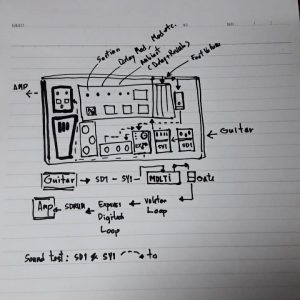 Section
Delay Mod, Mod etc.
Ambient
(Delay+Reverb)
Foot Volume
AMP
SY1
SD1
Guitar
Guitar → SD1 - SY1 → MULTI
Gate
Amp ← SDRUM ← Express ← Voletor
Digitech Loop
Loop
Sound test: SD1 & SY1 to